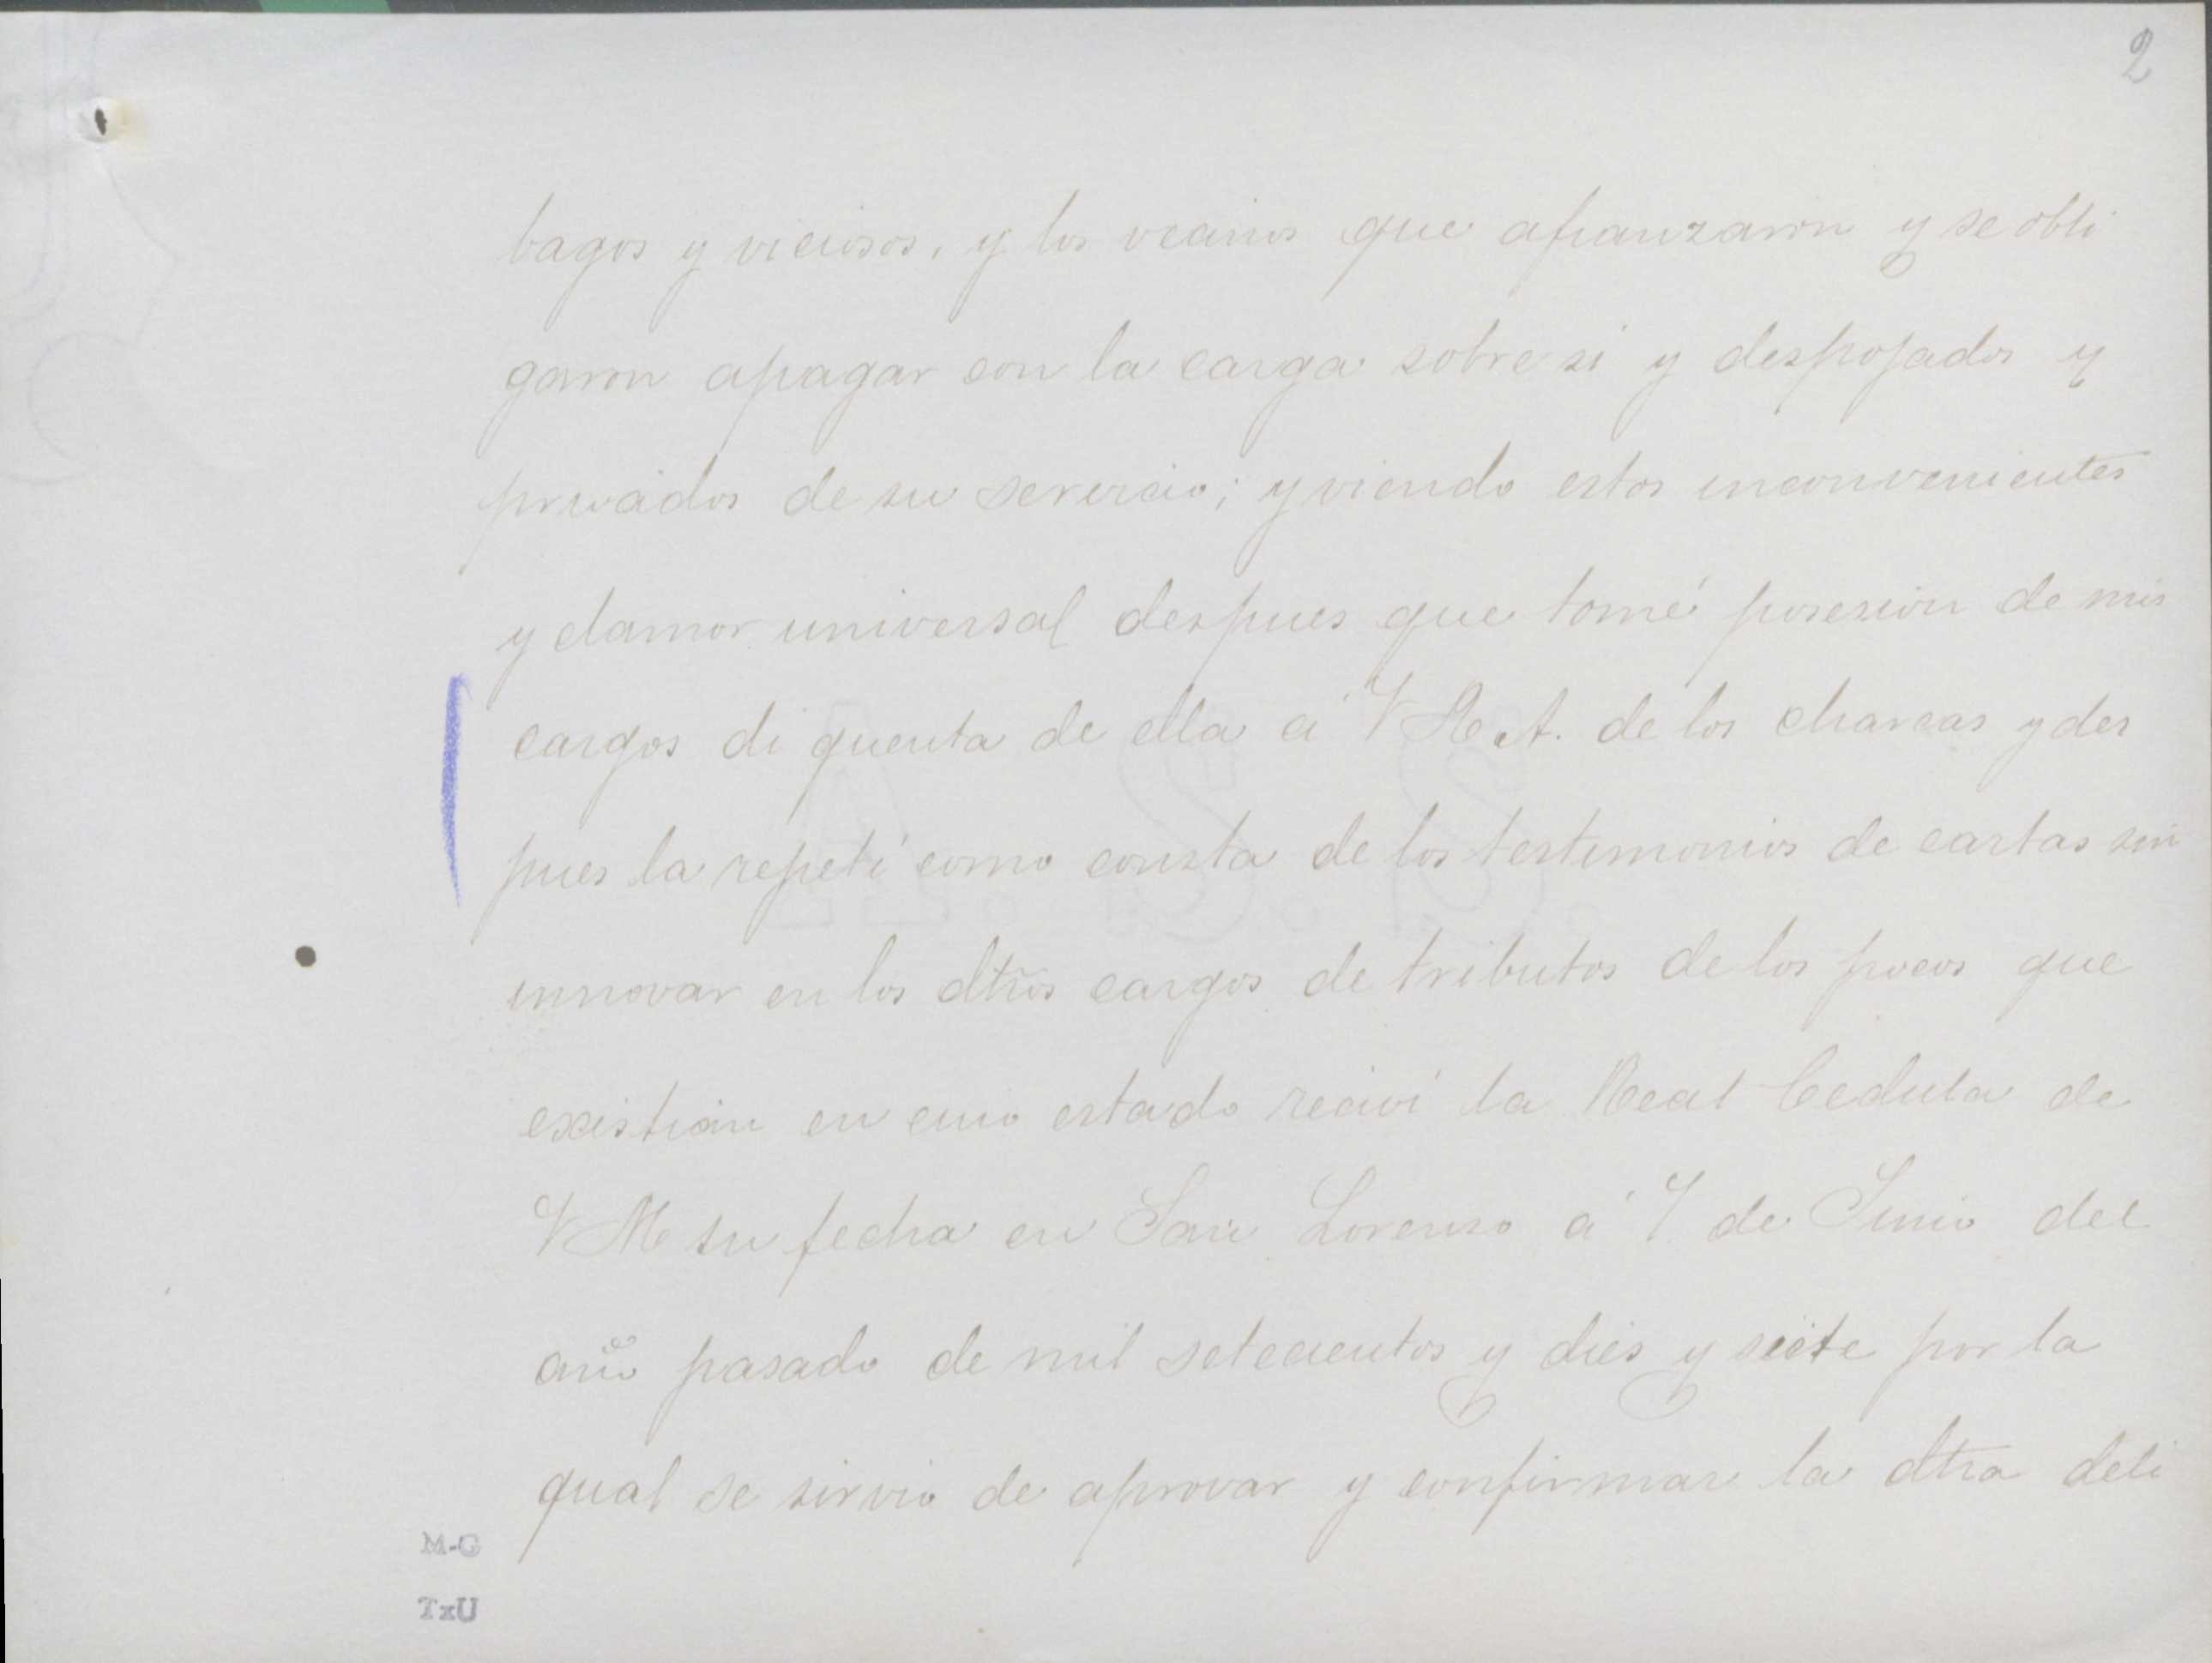 2
bagos y viciosos, y los vecinos que afianzaron y se obli
garon apagar con la carga sobre si y despojados y
privados de su servicio; y viendo estos inconvenientes
y clamor universal despues que tomé posesion de mis
cargos di quenta de ella á V R. A. de los charcas y des
pues la repetí como consta de los testimonios de cartas sin
innovar en los dhos cargos de tributos de los pocos que
existian en cuio estado recivi la Real Cedula de
V M su fecha en San Lorenzo á 7 de Junio del
año pasado de mil setecientos y dies y siete por la
qual se sirvio de aprovar y confirmar la dha deli
M-G
TxU